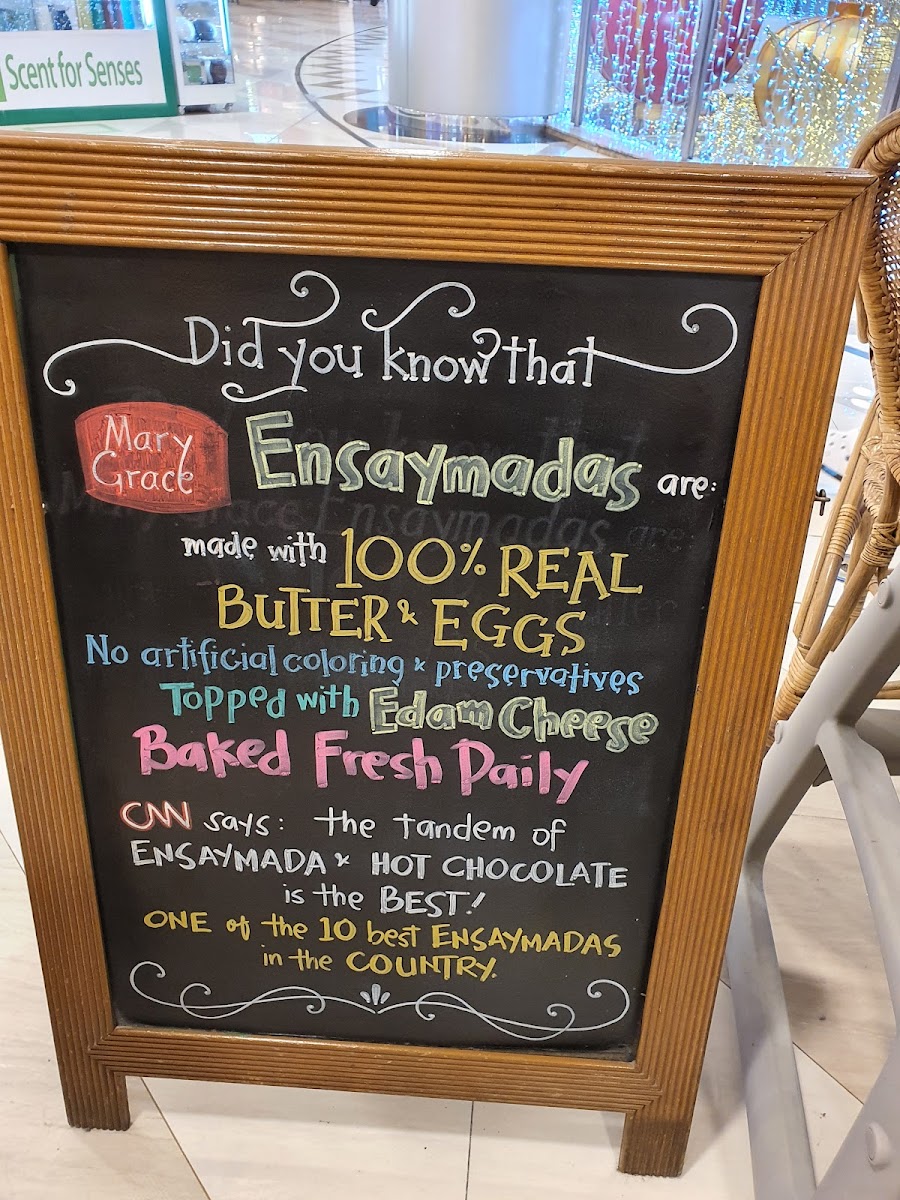 Scent for Senses
Did you know that
Mary Grace Ensaymadas are:
made with 100% REAL
BUTTER & EGGS
No artificial coloring & preservatives
Topped with Edam Cheese
Baked Fresh Daily
CNN says: the tandem of
ENSAYMADA & HOT CHOCOLATE
is the BEST!
ONE of the 10 best ENSAYMADAS
in the COUNTRY.